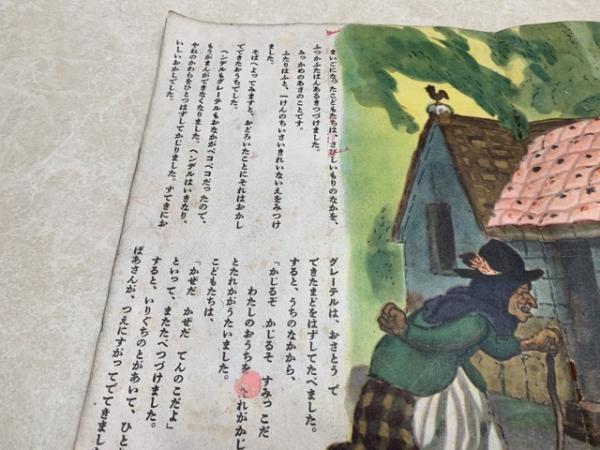 まいごになったこどもたちは、さびしいもりのなかを、
ふつかふたばんあるきつづけました。
みっかめのあさのことです。
ふたりはふと、一けんのちいさいきれいないえをみつけ
ました。
そばへよってみますと、おどろいたことにそれはおかし
でできたおうちでした。
ヘンデルもグレーテルもおなかがペコペコだったので、
もうがまんができなくなりました。ヘンデルはいきなり、
やねのかわらをひとつはずしてかじりました。すてきにお
いしいおかしでした。
グレーテルは、おさとうで
できたまどをはずしてたべました。
すると、うちのなかから、
「かじるぞ かじるぞ すみっこだ
わたしのおうちを だれがかじ
とだれかがうたいました。
こどもたちは、
「かぜだ かぜだ てんのこだよ」
といって、またたべつづけました。
すると、いりぐちのとがあいて、ひと
ばあさんが、つえにすがってでてきまし